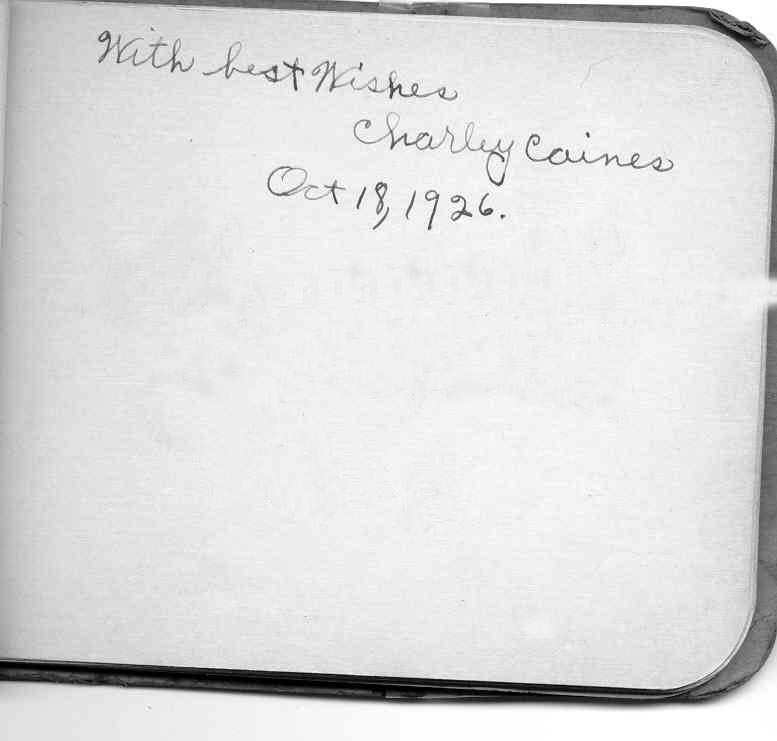 With best Wishes
Charley Caines
Oct 18, 1926.